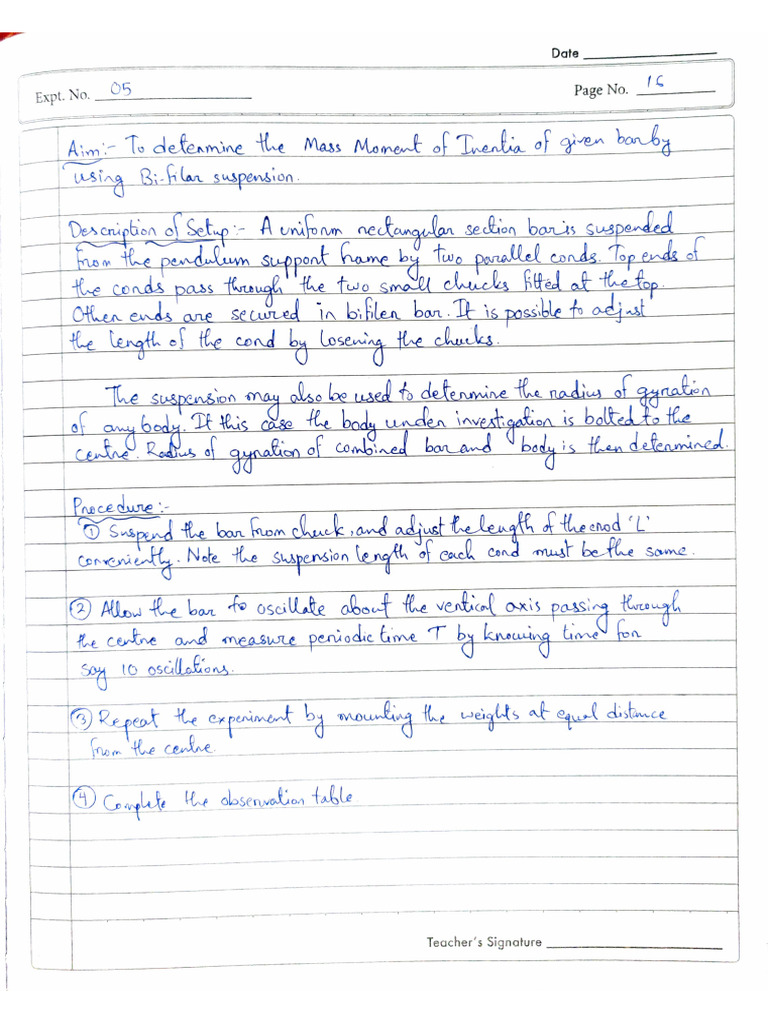 Date
Expt. No. 05
Page No. 16
Aim:- To determine the Mass Moment of Inertia of given bar by
using Bi-filar suspension.
Description of Setup:- A uniform rectangular section bar is suspended
from the pendulum support frame by two parallel conds. Top ends of
the conds pass through the two small chucks fitted at the top.
Other ends are secured in bifiler bar. It is possible to adjust
the length of the cond by losening the chucks.
The suspension may also be used to determine the radius of gyration
of any body. If this case the body under investigation is bolted to the
centre. Radius of gyration of combined bar and body is then determined.
Procedure:-
① Suspend the bar from chuck, and adjust the length of the crod 'L'
conveniently. Note the suspension length of each cond must be the same.
② Allow the bar to oscillate about the vertical axis passing through
the centre and measure periodic time T by knowing time for
say 10 oscillations.
③ Repeat the experiment by mounting the weights at equal distance
from the centre.
④ Complete the observation table
Teacher's Signature